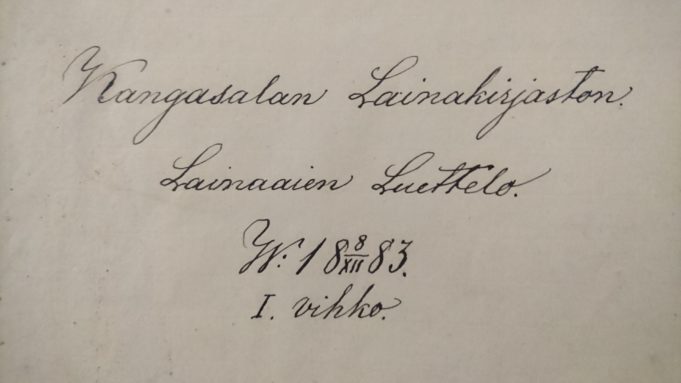 Kangasalan Lainakirjaston.
Lainaaien Luettelo.
W: 18 8/XII 83.
I. vihko.